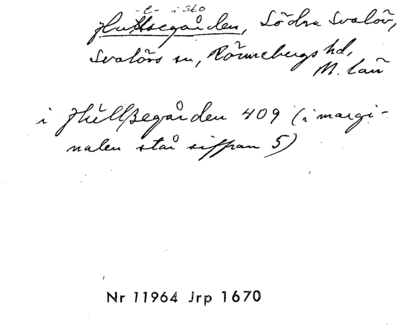 -l- i Sko
Hullsegården, Södra Svalöv,
Svalövs sn, Rönnebergs hd,
M. län
i Hüllßegården 409 (i margi-
nalen står siffran 5)
Nr 11964 Jrp 1670